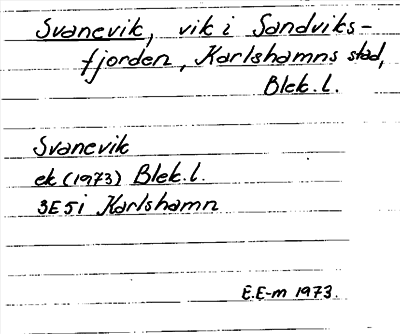 Svanevik, vik i Sandviks-
fjorden, Karlshamns stad,
Blek.l.
Svanevik
ek (1973) Blek.l.
3E5i Karlshamn
E.E-m 1973.